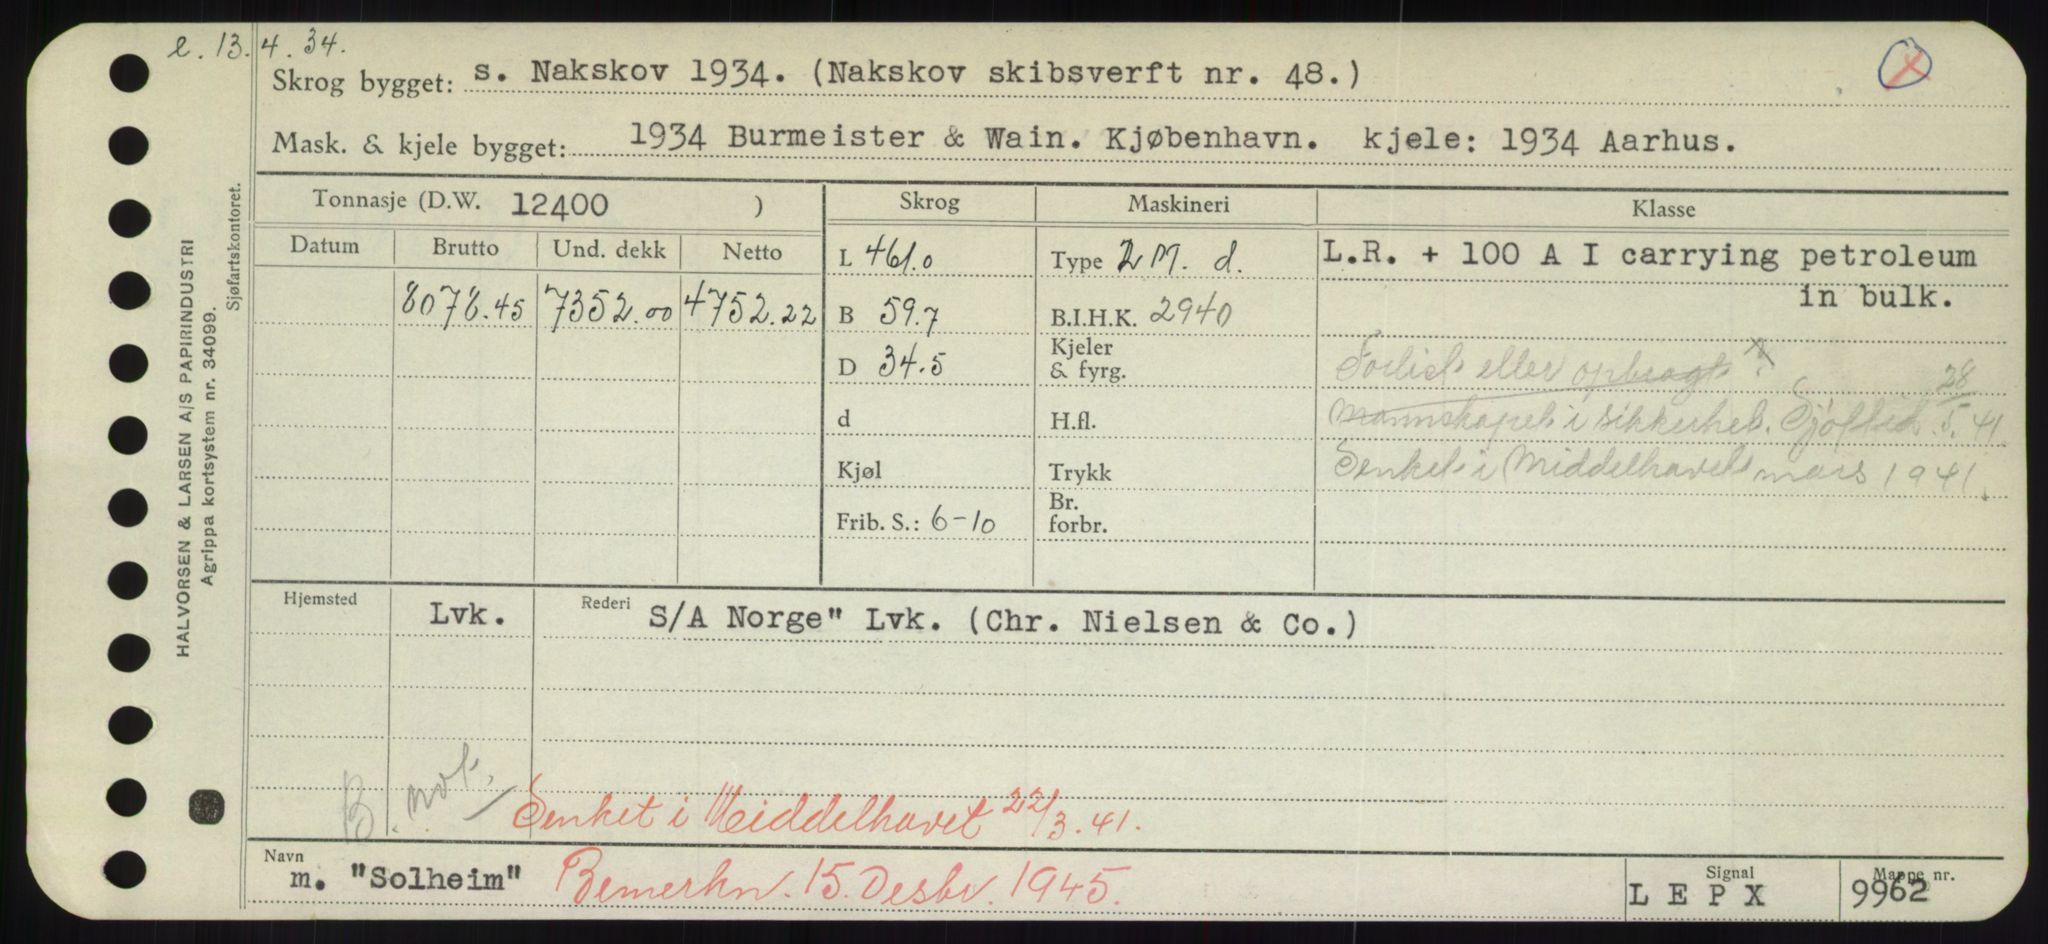 e. 13.4.34.
Skrog bygget: s. Nakskov 1934. (Nakskov skibsverft nr. 48.)
Mask. & kjele bygget: 1934 Burmeister & Wain. Kjøbenhavn. kjele: 1934 Aarhus.
Tonnasje (D.W. 12400 ) Skrog Maskineri Klasse
Datum Brutto Und. dekk Netto
8078.45 7352.00 4752.22
L 461.0
B 59.7
D 34.5
d
Kjøl
Frib. S.: 6-10
Type 2 M. d.
B.I.H.K. 2940
Kjeler
& fyrg.
H.fl.
Trykk
Br.
forbr.
L.R. + 100 A I carrying petroleum
in bulk.
Forlist eller opbragt ?
Mannskapet i sikkerhet. Sjøftid. 28/5. 41
Senket i Middelhavet mars 1941.
Hjemsted Lvk. Rederi S/A Norge" Lvk. (Chr. Nielsen & Co.)
B. not.
Senket i Middelhavet 22/3. 41.
Navn m. "Solheim" Bemerkn. 15. Desbr. 1945.
Signal L E P X
Mappe nr. 9962
HALVORSEN & LARSEN A/S PAPIRINDUSTRI
Agrippa kortsystem nr. 34099.
Sjøfartskontoret.